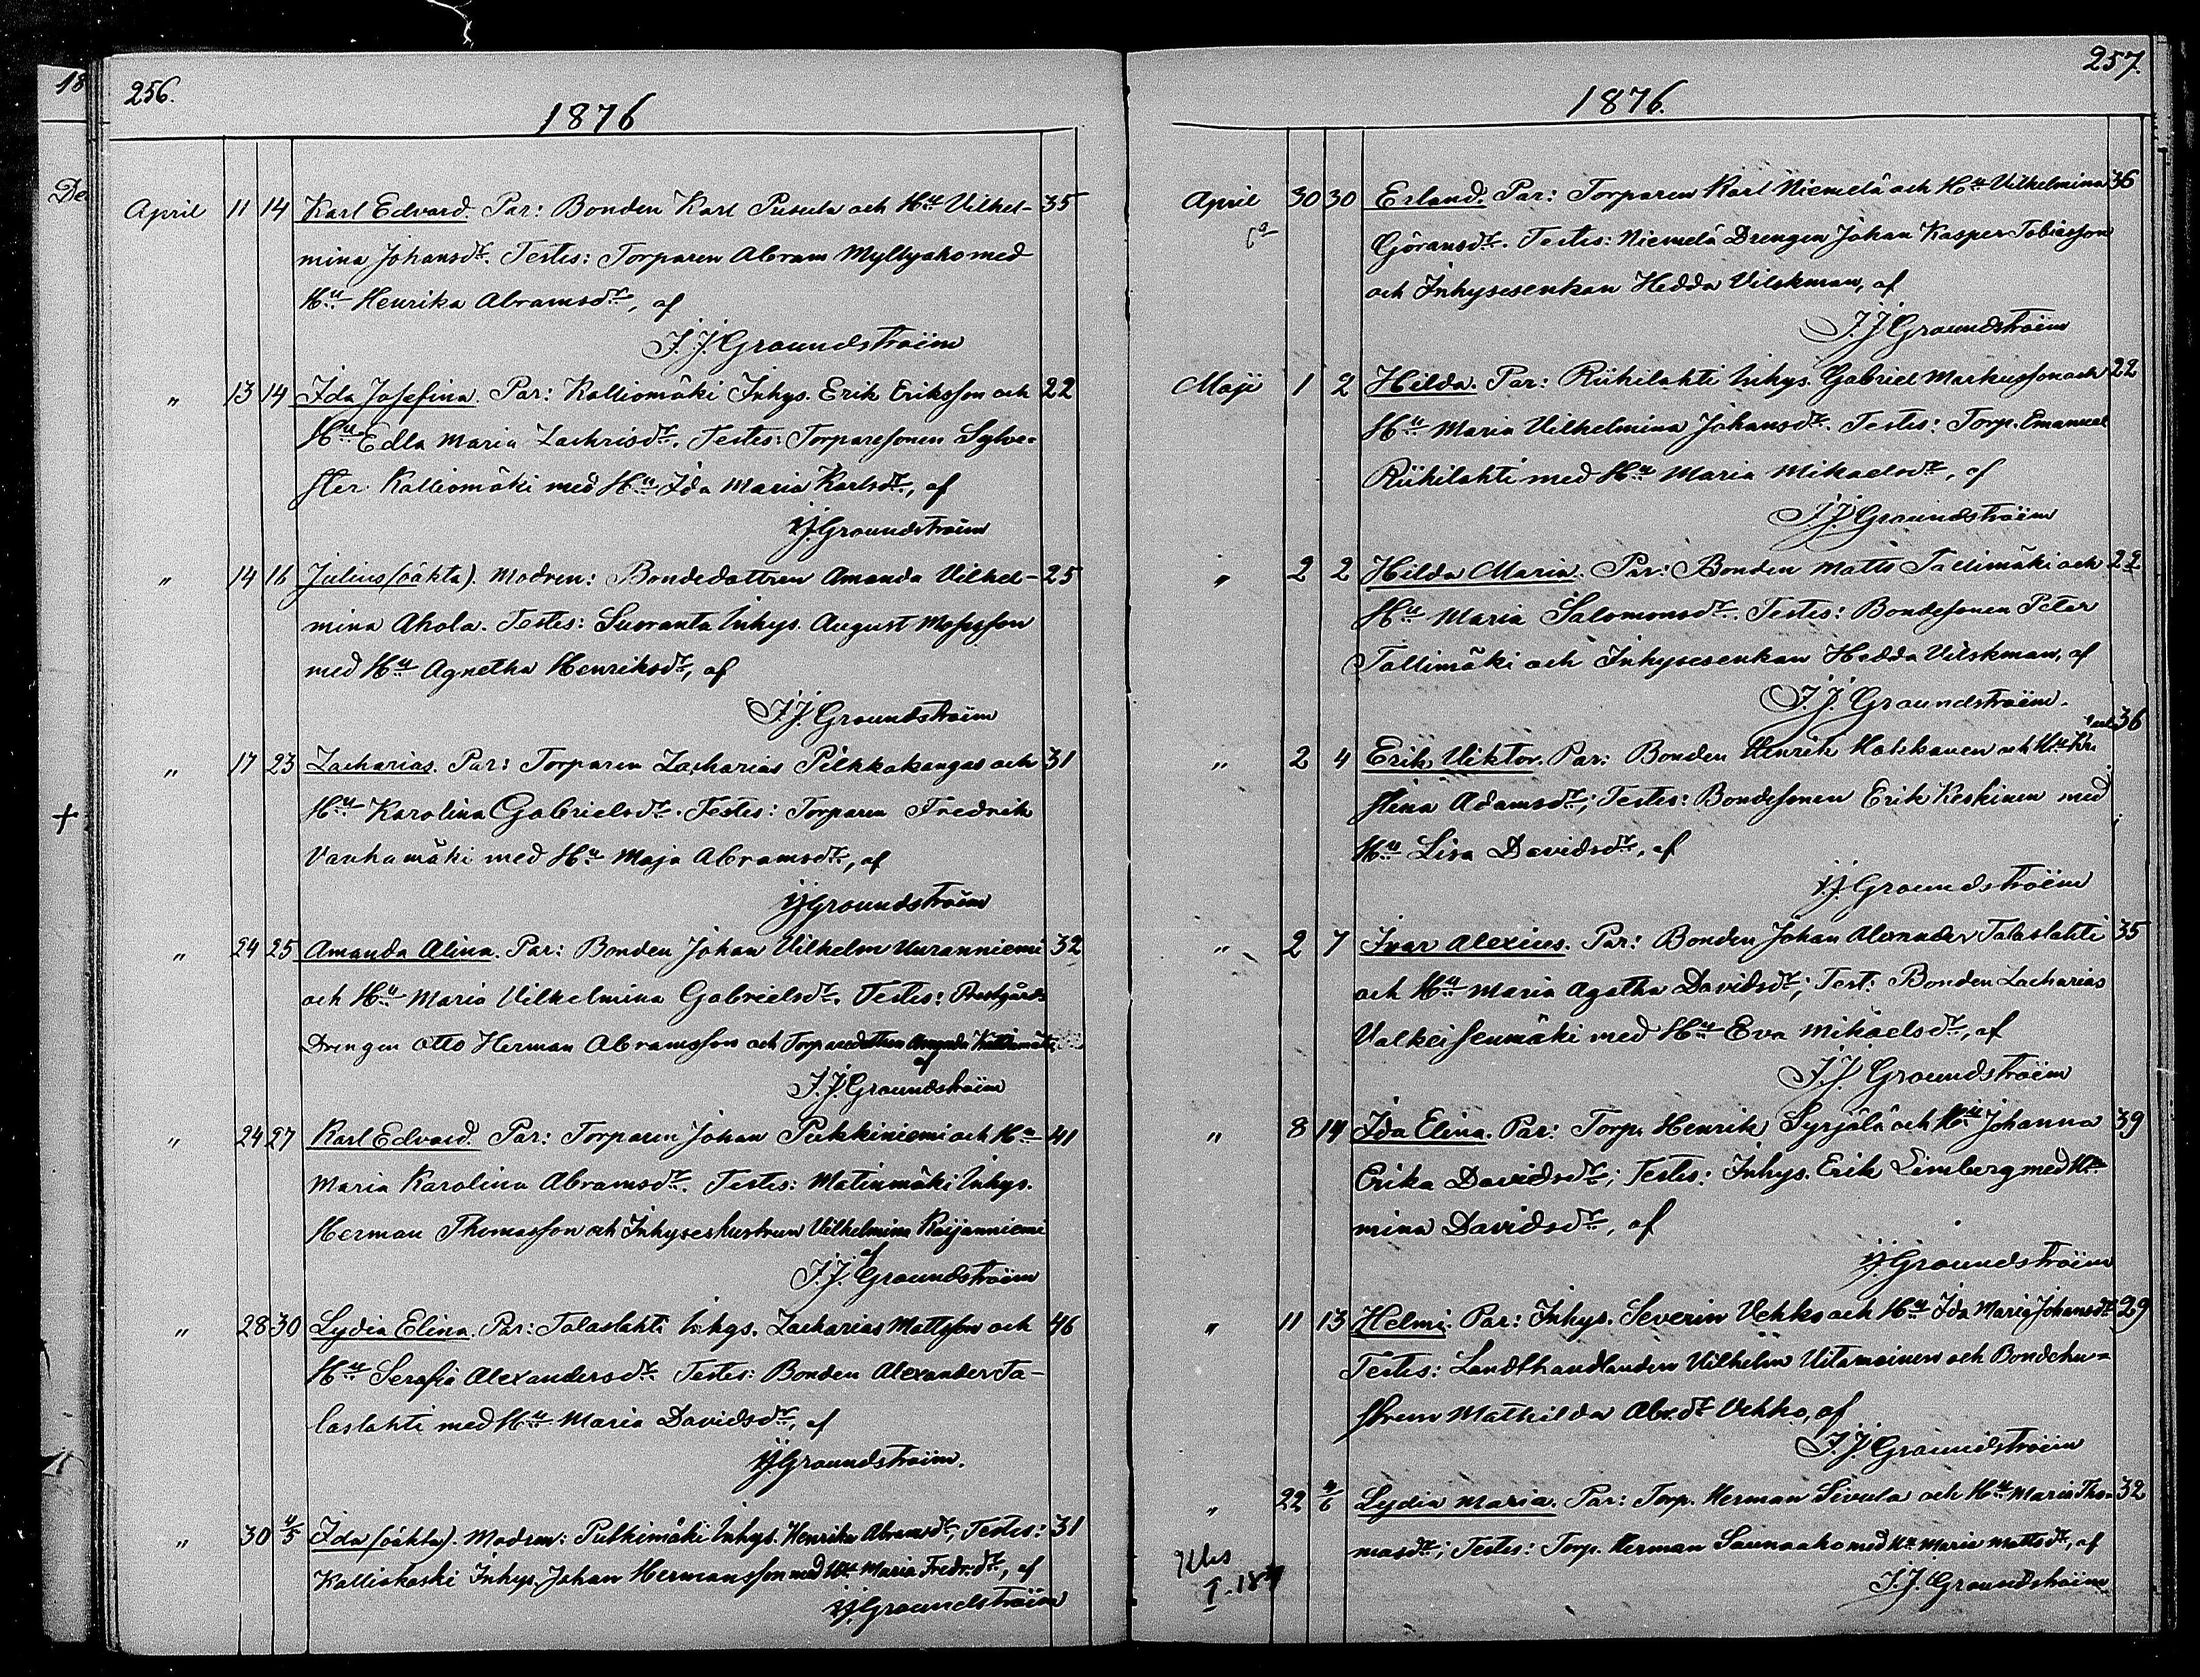 18
256.
1876
De
April 11 14 Karl Edvard. Par: Bonden Karl Pusula och Hu Vilhel- 35
mina Johansdr. Testes: Torparen Abram Myllyaho med
Hu Henrika Abramsdr, af
J. J. Groundstroëm
„ 13 14 Ida Josefina. Par: Kalliomäki Inhys. Erik Eriksson och 22
Hu Edla Maria Zachrisdr. Testes: Torparesonen Sylve-
ster Kalliomäki med Hu Ida Maria Karlsdr, af
JJ. Groundstroëm
„ 14 16 Julius (oäkta). Modren: Bondedottren Amanda Vilhel- 25
mina Ahola. Testes: Suoranta Inhys. August Mosesson
med Hu Agnetha Henriksdr, af
J. J. Groundstroëm
„ 17 23 Zacharias. Par: Torparen Zacharias Pilkkakangas och 31
Hu Karolina Gabrielsdr. Testes: Torparen Fredrik
Vanhamäki med Hu Maja Abramsdr, af
JJ Groundstroëm
„ 24 25 Amanda Alina. Par: Bonden Johan Vilhelm Uuranniemi 32
och Hu Maria Vilhelmina Gabrielsdr. Testes: Prestgårds
Drengen Otto Herman Abramsson och Torparedottren Amanda
af
J. J. Groundstroëm
„ 24 27 Karl Edvard. Par: Torparen Johan Pukkiniemi och Hu 41
Maria Karolina Abramsdr. Testes: Matinmäki Inhys.
Herman Thomasson och Inhyseshustrun Vilhelmina Raijanniemi
af
J. J. Groundstroëm
„ 28 30 Lydia Elina. Par: Talaslahti Inhys. Zacharias Mattsson och 46
Hu Serafia Alexandersdr. Testes: Bonden Alexander Ta-
laslahti med Hu Maria Davidsdr, af
JJ. Groundstroëm.
„ 30 4/5 Ida (oäkta). Modren: Pulkimäki Inhys. Henrika Abramsdr; Testes: 31
Kalliokoski Inhys. Johan Hermansson med Hu Maria Fredr.dr, af
JJ. Groundstroëm
257.
1876.
April 30 30 Erland. Par: Torparen Karl Niemelä och Hu Vilhelmina 36
Göransdr. Testes: Niemelä Drengen Johan Kasper Tobiasson
och Inhysesenkan Hedda Vilskman, af
J. J. Groundstroëm
Maji 1 2 Hilda. Par: Riihilahti Inhys. Gabriel Markusson och 22
Hu Maria Vilhelmina Johansdr. Testes: Torp. Emanuel
Riihilahti med Hu Maria Mikaelsdr, af
J. J. Groundstroëm
„ 2 2 Hilda Maria. Par: Bonden Matts Tallimäki och 22
Hu Maria Salomonsdr. Testes: Bondesonen Peter
Tallimäki och Inhysesenkan Hedda Vilskman, af
J. J. Groundstroëm.
„ 2 4 Erik Viktor. Par: Bonden Henrik Hakkanen och Hu Kri- 36
stina Adamsdr; Testes: Bondesonen Erik Keskinen med
Hu Lisa Davidsdr, af
JJ. Groundstroëm
„ 2 7 Ivar Alexius. Par: Bonden Johan Alexander Talaslahti 35
och Hu Maria Agatha Davidsdr; Test: Bonden Zacharias
Valkeisenmäki med Hu Eva Mikaelsdr, af
J. J. Groundstroëm
„ 8 14 Ida Elina. Par: Torp. Henrik Syrjälä och Hu Johanna 39
Erika Davidsdr; Testes: Inhys. Erik Limberg med Hu
mina Davidsdr, af
JJ Groundstroëm
„ 11 13 Helmi. Par: Inhys. Severin Vehko och Hu Ida Maria Johansdr 29
Testes: Landthandlanden Vilhelm Uitamoinen och Bondehu-
strun Mathilda Abr.dr Vehko, af
J. J. Groundstroëm
„ 22 4/6 Lydia Maria. Par: Torp. Herman Sivula och Hu Maria Tho- 32
masdr; Testes: Torp. Herman Saunaaho med Hu Maria Mattsdr, af
J. J. Groundstroëm